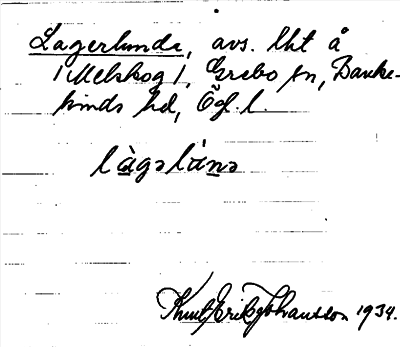 Lagerlunda, avs. lht å
/Melskog/, Grebo sn, Banke-
kinds hd, Ög. l.
làgəlùnə
Knut Erik Johansson 1934.